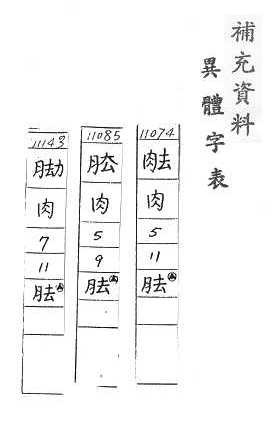 補充資料
異體字表
11074
肉
5
11
胠
11085
肉
5
9
胠
11143
肉
7
11
胠